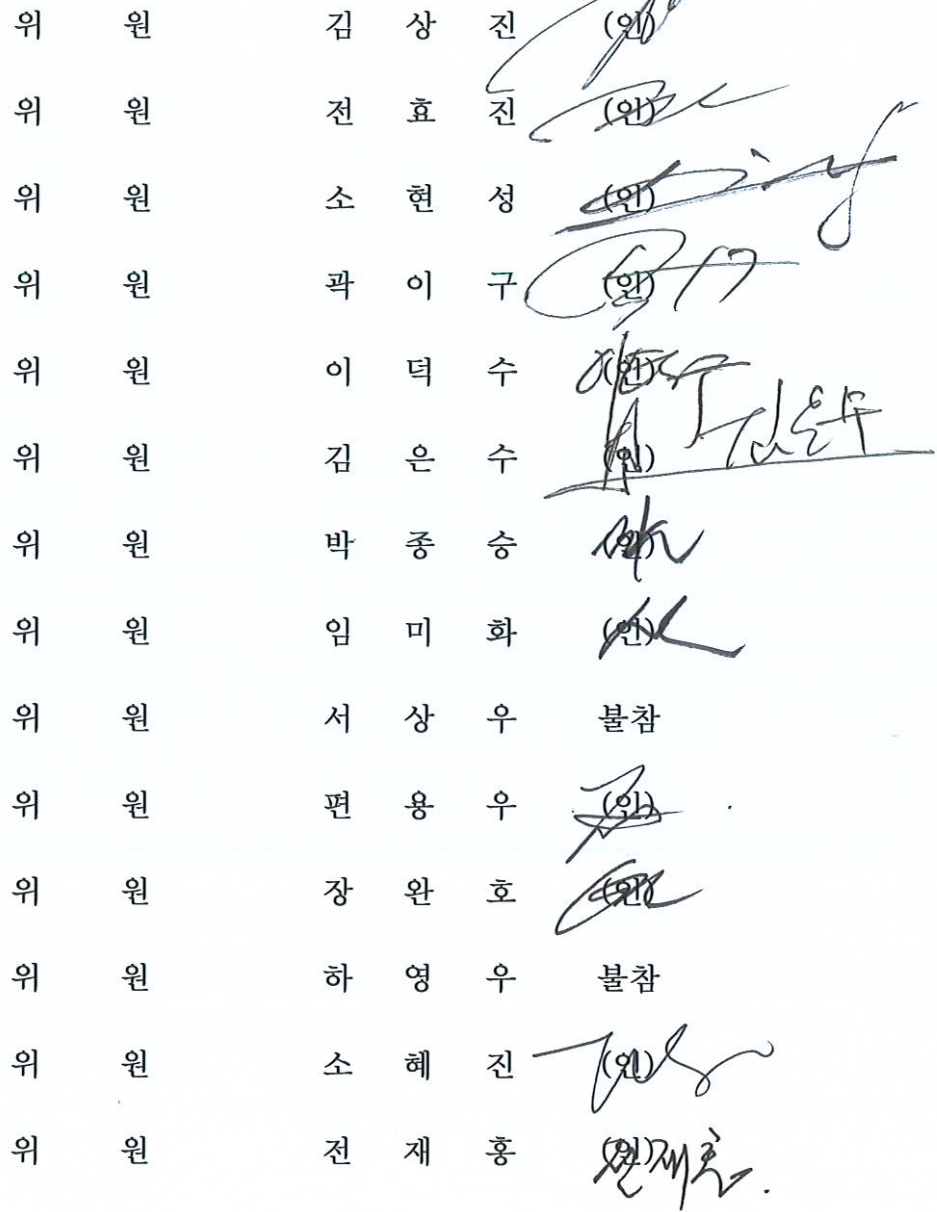 위 원 김 상 진 (인)
위 원 전 효 진 (인)
위 원 소 현 성 (인)
위 원 곽 이 구 (인)
위 원 이 덕 수 (인)
위 원 김 은 수 (인) 김은수
위 원 박 종 승 (인)
위 원 임 미 화 (인)
위 원 서 상 우 불참
위 원 편 용 우 (인)
위 원 장 완 호 (인)
위 원 하 영 우 불참
위 원 소 혜 진 (인)
위 원 전 재 홍 (인) 전재홍